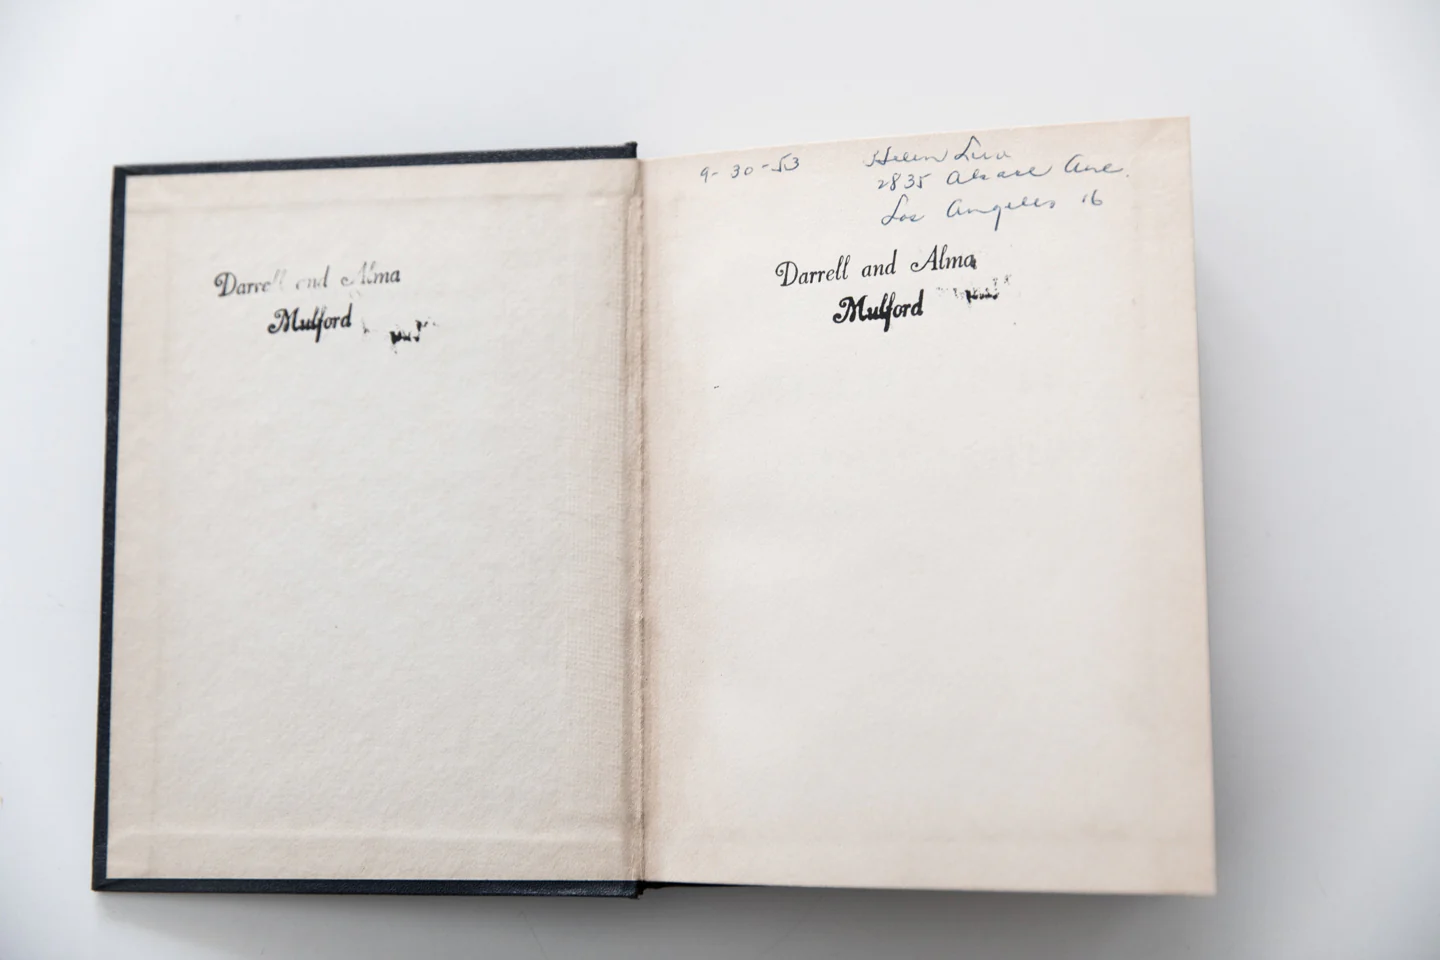 Darrell and Alma
Mulford
9-30-53
Helen
2835 Alsace Ave.
Los Angeles 16
Darrell and Alma
Mulford